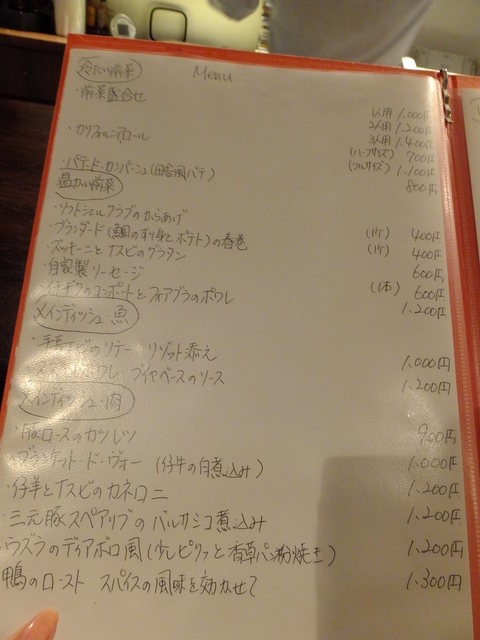 Menu
冷たい前菜
・前菜盛合せ
1人用 1.000円
2人用 1.200円
3人用 1.400円
・カリフォルニアロール
(ハーフサイズ) 700円
(フルサイズ) 1.100円
・パテ・ド・カンパーニュ(田舎風パテ) 800円
温かい前菜
・ソフトシェルクラブのからあげ (1ケ) 400円
・ブランダード(鱈のすり身とポテト)の春巻 (1ケ) 400円
・ズッキーニとナスビのグラタン 600円
・自家製ソーセージ (1本) 600円
のコンポートとフォアグラのポワレ 1.200円
メインディッシュ・魚
・手長エビのソテー リゾット添え 1.000円
ポワレ ブイヤベースのソース 1.200円
メインディッシュ・肉
・豚ロースのカツレツ 900円
・ブランケット・ド・ヴォー(仔牛の白煮込み) 1.000円
・仔羊とナスビのカネロニ 1.200円
・三元豚スペアリブのバルサミコ煮込み 1.200円
・ウズラのディアボロ風(少しピリッと香草パン粉焼き) 1.200円
鴨のロースト スパイスの風味を効かせて 1.300円